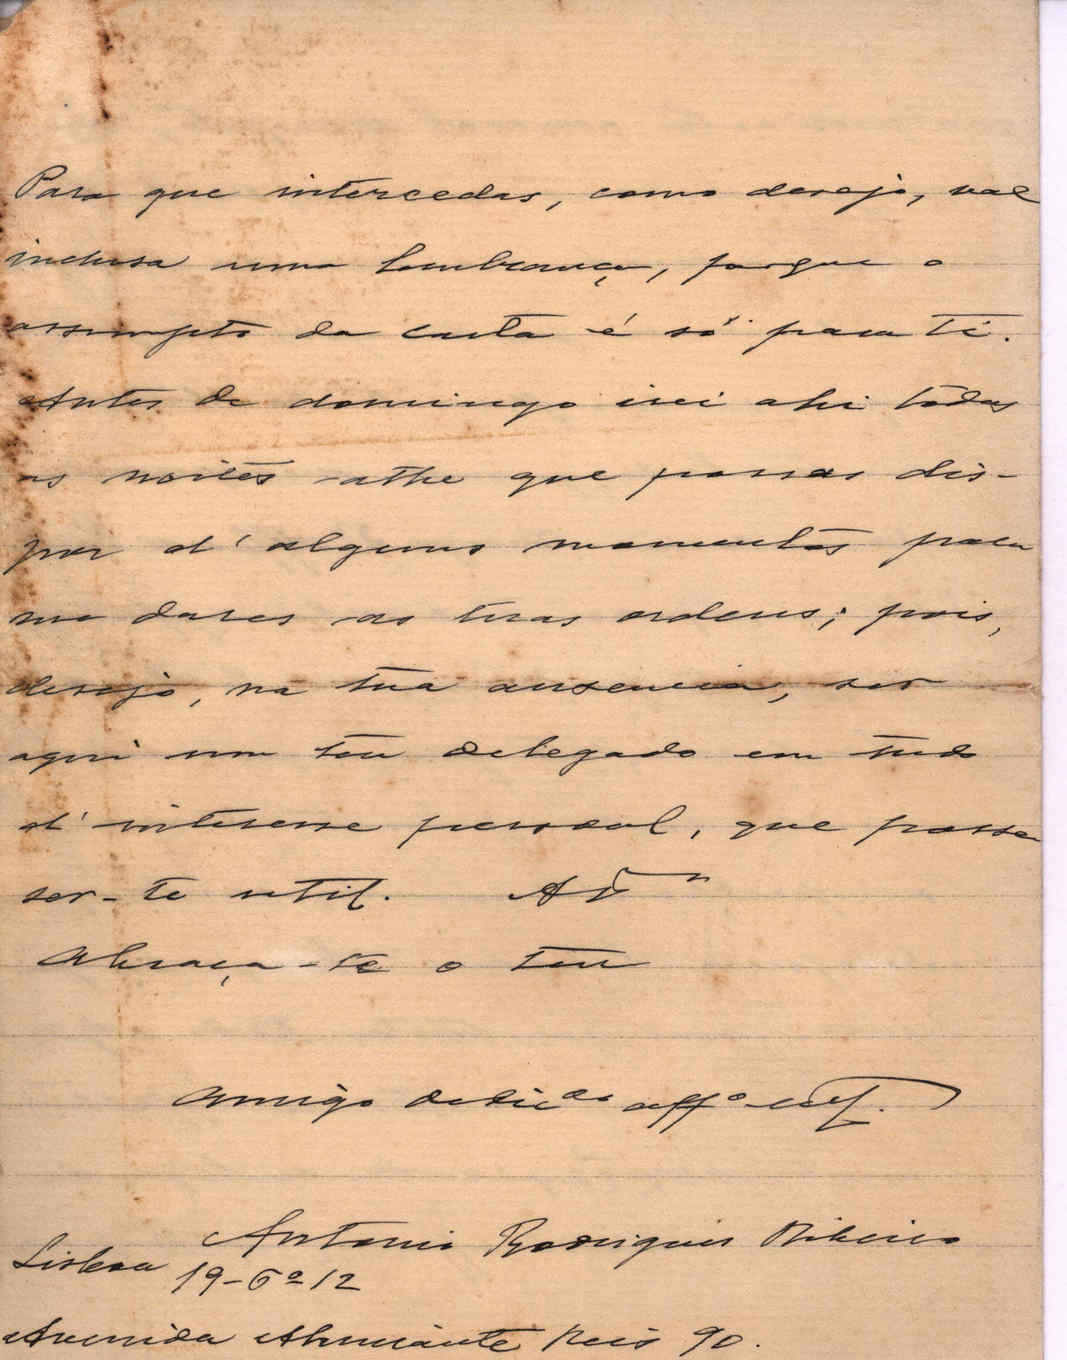 Para que intercedas, como desejo, vae
inclusa uma lembrança, porque o
assumpto da carta é só para ti.
Antes de domingo irei ahi todas
as noites athe que possas dis-
por d'alguns momentos para
me dares as tuas ordens; pois,
desejo, na tua ausencia, ser
aqui um teu delegado em tudo
d'interesse pessoal, que possa
ser-te util.
Abraça-te o teu
Amigo dedic.do aff.o
Antonio Rodrigues Ribeiro
Lisboa
19-6º 12
Avenida Almirante Reis 90.